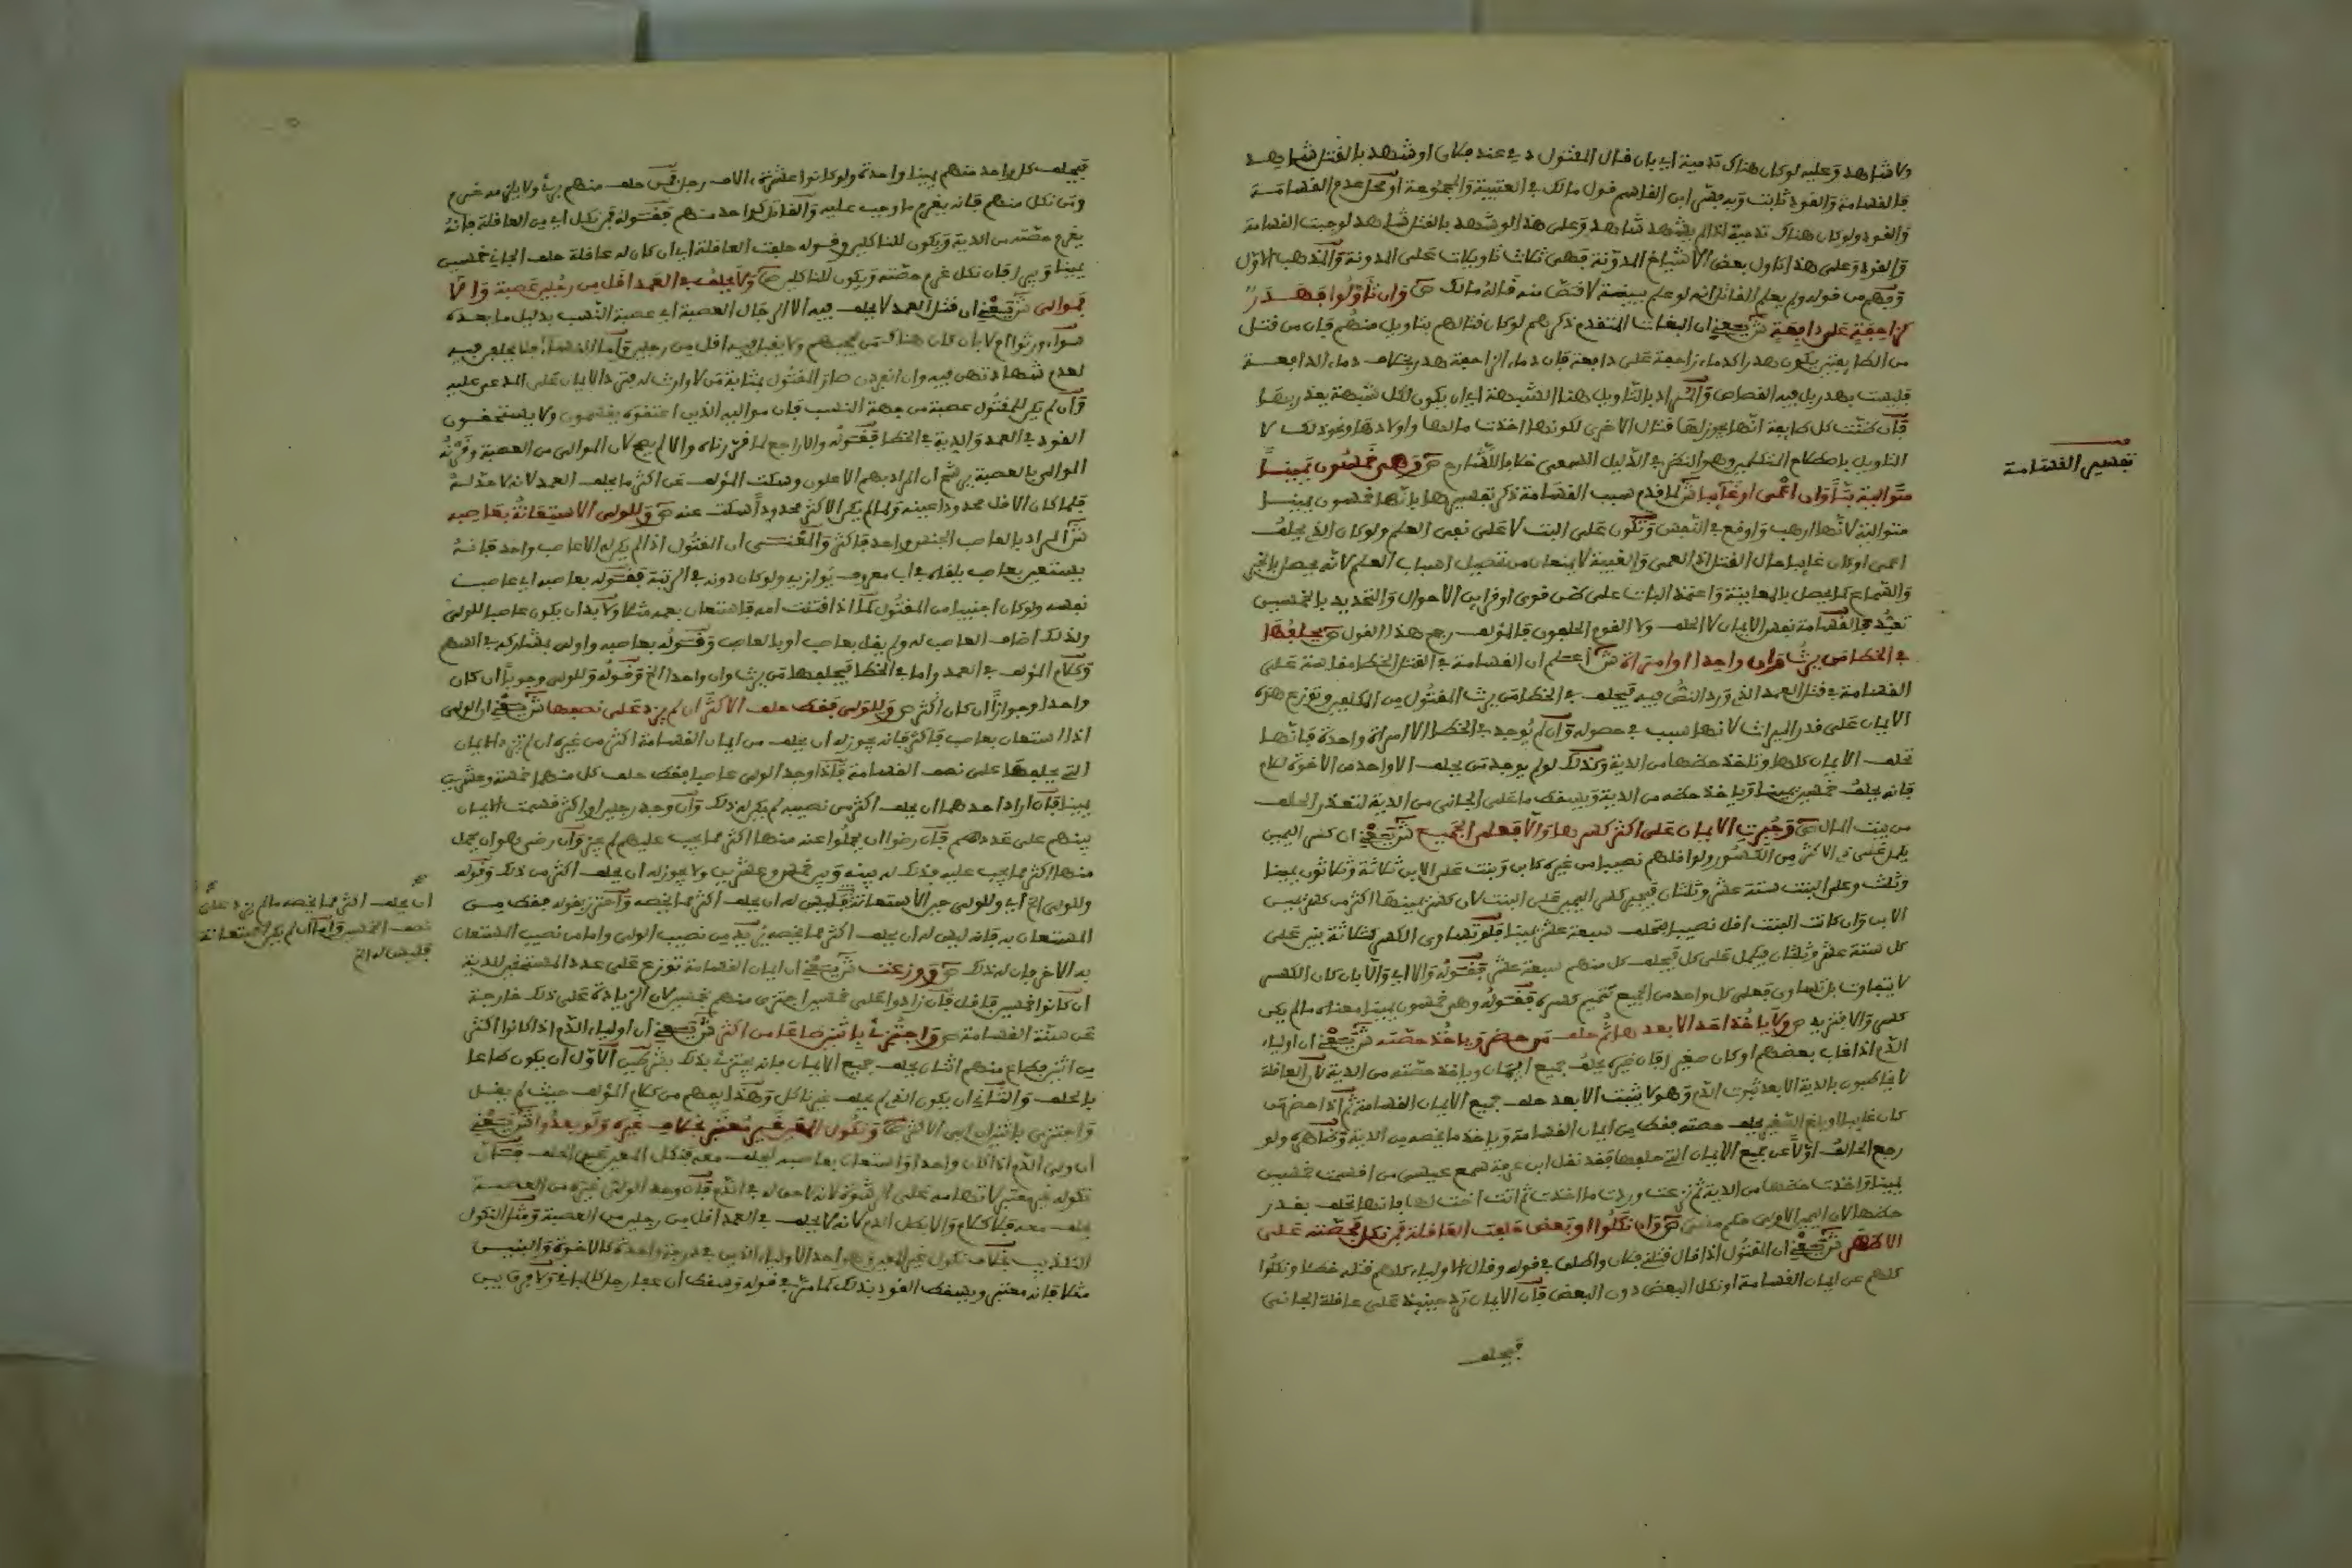 ولا شاهد وعليه لو كان هناك تدمية اي بان قال المقتول دمي عند فلان او شهد بالقتل شاهد
فالقسامة والقود ثابت وبه يفتي ابن القاسم قول مالك في العتبية والمجموعة او محل عدم القسامة
والقود ولو كان هناك تدمية اذا لم يشهد شاهد وعلى هذا لو شهد بالقتل شاهد لوجبت القسامة
والقود وعلى هذا تاول بعض الاشياخ المدونة فهي ثلاث تاويلات على المدونة والمذهب الاول
وفهم من قوله ولم يعلم القاتل انه لو علم ببينة لاقتص منه قاله مالك ص وان تاولوا فهدر
كزاحفة على دافعة ش يعني ان البغات المتقدم ذكرهم لو كان قتالهم بتاويل منهم فان من قتل
من الطايفتين يكون هدرا كدماء زاحفة على دافعة فان دماء الزاحفة هدر بخلاف دماء الدافعة
فليست بهدر بل فيه القصاص والمراد بالتاويل هنا الشبهة اي ان يكون لكل شبهة يعذر بها
فان ظنت كل طايفة انها يجوز لها قتال الاخرى لكونها اخذت مالها واولادها ونحو ذلك لا
التاويل باصطلاح المتكلمين وهو النظر في الدليل السمعي خلافا للشارح ص وهي خمسون يمينا
متوالية بتا وان اعمى او غايبا ش لما قدم سبب القسامة ذكر تفسيرها بانها خمسون يمينا
متوالية لانها ارهب واوقع في النفس وتكون على البت لا على نفي العلم ولو كان الذي يحلف
اعمى او كان غايبا حال القتل اذ العمى والغيبة لا يمنعان من تحصيل اسباب العلم لانه يحصل بالخبر
والسماع كما يحصل بالمعاينة واعتمد البات على ظن قوي او قراين الاحوال والتحديد بالخمسين
تعبد فالقسامة نفس الايمان لا الحلف ولا القوم الحالفون فالمؤلف رجح هذا القول ص يحلفها
في الخطا من يرث وان واحدا او امراة ش اعلم ان القسامة في القتل الخطا مقاسة على
القسامة في قتل العمد الذي ورد النص فيه فيحلف في الخطا من يرث المقتول من المكلفين وتوزع هذه
الايمان على قدر الميراث لانها سبب في حصوله وان لم يوجد في الخطا الا امراة واحدة فانها
تحلف الايمان كلها وتاخذ حظها من الدية وكذلك لو لم يوجد من يحلف الا واحد من الاخوة للام
فانه يحلف خمسين يمينا وياخذ حظه من الدية ويسقط ما على الجاني من الدية لتعذر الحلف
من بيت المال ص وجبرت الايمان على اكثر كسرها والا فعلى الجميع ش يعني ان كسر اليمين
يكمل على ذي الاكثر من الكسور ولو اقلهم نصيبا من غيره كابن وبنت على الابن ثلاثة وثلاثون يمينا
وثلث وعلى البنت ستة عشر وثلثان فيجبر كسر اليمين على البنت لان كسر يمينها اكثر من كسر يمين
الابن وان كانت البنت اقل نصيبا فتحلف سبعة عشر يمينا فلو تساوى الكسر كثلاثة بنين على
كل ستة عشر وثلثان فيكمل على كل فيحلف كل منهم سبعة عشر فقوله والا اي والا بان كان الكسر
لا يتفاوت بل تساوى فعلى كل واحد من الجميع تتميم كسره فقوله وهي خمسون يمينا معناه ما لم يكن
كسر والا فتزيد ص ولا ياخذ احد الا بعدها ثم حلف من حضر وياخذ حصته ش يعني ان اولياء
الدم اذا غاب بعضهم او كان صغيرا فان غيره يحلف جميع ايمان وياخذ حصته من الدية لان العاقلة
لا يخاطبون بالدية الا بعد ثبوت الدم وهو لا يثبت الا بعد حلف جميع الايمان القسامة ثم اذا حضر من
كان غايبا او بلغ الصغير يحلف حصته فقط من ايمان القسامة وياخذ ما يخصه من الدية وظاهره ولو
رجع الحالف اولا عن جميع الايمان التي حلفها فقد نقل ابن عرفة سمع عيسى من اقسمت خمسين
يمينا واخذت حظها من الدية ثم نزعت وردت ما اخذت ثم اتت اخت لها فانها تحلف بقدر
حظها لان اليمين الاولى حكم مضى ص وان نكلوا او بعض حلفت العاقلة فمن نكل فحصته على
الاظهر ش يعني ان المقتول اذا قال قتلني فلان واطلق في قوله وقال الاولياء كلهم قتله خطا ونكلوا
كلهم عن ايمان القسامة او نكل البعض دون البعض فان الايمان ترد حينئذ على عاقلة الجاني
فيحلف
تفسير القسامة
فيحلف كل واحد منهم يمينا واحدة ولو كانوا عشرة الاف رجل فمن حلف منهم بري ولا يلزمه غرم
ومن نكل منهم فانه يغرم ما وجب عليه والقاتل كواحد منهم فقوله فمن نكل اي من العاقلة فانه
يغرم حصته من الدية ويكون للناكلين وقوله حلفت العاقلة اي ان كان له عاقلة حلف الجاني خمسين
يمينا وبري فان نكل غرم حصته ويكون للناكلين ص ولا يحلف في العمد اقل من رجلين عصبة والا
فموالي ش يعني ان قتل العمد لا يحلف فيه الا الرجال العصبة اي عصبة النسب بدليل ما بعده
سواء ورثوا ام لا بان كان هناك من يحجبهم ولا يقبل فيه اقل من رجلين واما النساء فلا يحلفن فيه
لعدم شهادتهن فيه وان انفردن صار المقتول بمثابة من لا وارث له فترد الايمان على المدعى عليه
وان لم يكن للمقتول عصبة من جهة النسب فان مواليه الذين اعتقوه يقسمون ولا يستحقون
القود في العمد والدية في الخطا فقوله والا راجع لما قررناه والا لم يصح لان الموالي من العصبة وقرنه
الموالي بالعصبة يرشح ان المراد بهم الاعلون وسكت المؤلف عن اكثر ما يحلف العمد لانه لا حد له
فلما كان الاقل محدودا عينه ولما لم يكن الاكثر محدودا سكت عنه ص وللولي الاستعانة بعاصبه
ش المراد بالعاصب الجنس واحد فاكثر والمعنى ان المقتول اذا لم يكن له الا عاصب واحد فانه
يستعين بعاصب يلقاه في اب معروف يوازيه ولو كان دونه في الرتبة فقوله بعاصبه اي عاصب
نفسه ولو كان اجنبيا من المقتول كما اذا قتلت امه فاستعان بعمه مثلا ولا بد ان يكون عاصبا للولي
ولذلك اضاف العاصب له ولم يقل بعاصب او بالعاصب وقوله بعاصبه واولى بمشاركه في السهم
وكلام المؤلف في العمد واما في الخطا فيحلفها من يرث وان واحدا الخ وقوله وللولي وجوبا ان كان
واحدا وجوازا ان كان اكثر ص وللولي فقط حلف الاكثر ان لم يزد على نصفها ش يعني ان الولي
اذا استعان بعاصب فاكثر فانه يجوز له ان يحلف من ايمان القسامة اكثر من غيره ان لم تزد الايمان
التي يحلفها على نصف القسامة فاذا وجد الولي عاصبا فقط حلف كل منهما خمسة وعشرين
يمينا فان اراد احدهما ان يحلف اكثر من نصيبه لم يكن له ذلك وان وجد رجلين او اكثر قسمت الايمان
بينهم على عددهم فان رضوا ان يحملوا عنه منها اكثر مما يجب عليهم لم يجز وان رضي هو ان يحمل
منها اكثر مما يجب عليه فذلك له بينه وبين خمس وعشرين ولا يجوز له ان يحلف اكثر من ذلك وقوله
وللولي الخ اي وللولي حين الاستعانة فليس له ان يحلف اكثر مما يخصه واحترز بقوله فقط من
المستعان به فانه ليس له ان يحلف اكثر مما يخصه يزيد من نصيب الولي واما من نصيب المستعان
به الاخر فان له ذلك ص ووزعت ش يعني ان ايمان القسامة توزع على عدد المستحقين للدية
ان كانوا خمسين فاقل فان زادوا على خمسين اجتزي منهم بخمسين لان الزيادة على ذلك خارجة
عن سنة القسامة ص واجتزئ باثنين طاعا من اكثر ش يعني ان اولياء الدم اذا كانوا اكثر
من اثنين فطاع منهم اثنان بحلف جميع الايمان فانه يجتزئ بذلك بشرطين الاول ان يكون طاعا
بالحلف والثاني ان يكون الذي لم يحلف غير ناكل وهذا يفهم من كلام المؤلف حيث لم يقل
واجتزي باثنين ان ابى الاكثر ص ونكول المعين غير معتبر بخلاف غيره ولو بعدوا ش يعني
ان ولي الدم اذا كان واحدا واستعان بعاصبه ليحلف معه فنكل المعين عن الحلف فان
نكوله غير معتبر لاتهامه على الرشوة لانه لا حق له في الدم فان وجد الولي غيره من العصبة
يحلف معه فلا كلام والا بطل الدم لانه لا يحلف في العمد اقل من رجلين من العصبة ومثل النكول
التكذيب بخلاف نكول غير المعين وهو احد الاولياء الذين في درجة واحدة كالاخوة والبنين
مثلا فانه معتبر ويسقط القود بذلك كما مر في قوله وسقط ان عفا رجل كالباقي ولا فرق بين
ان يحلف اكثر مما يخصه ما لم يزد على
نصف الخمسين واما ان لم يكن استعانة
فليس له الخ